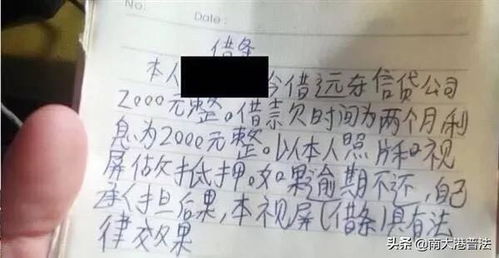 No.
Date:
借条
本人 今借远存信贷公司
2000元整。借款欠时间为两个月利
息为2000元整。以本人照片和视
屏低欠抵押。如果逾期不还,自己
承担后果,本视屏(借条)具有法
律效果
头条 @南大港普法